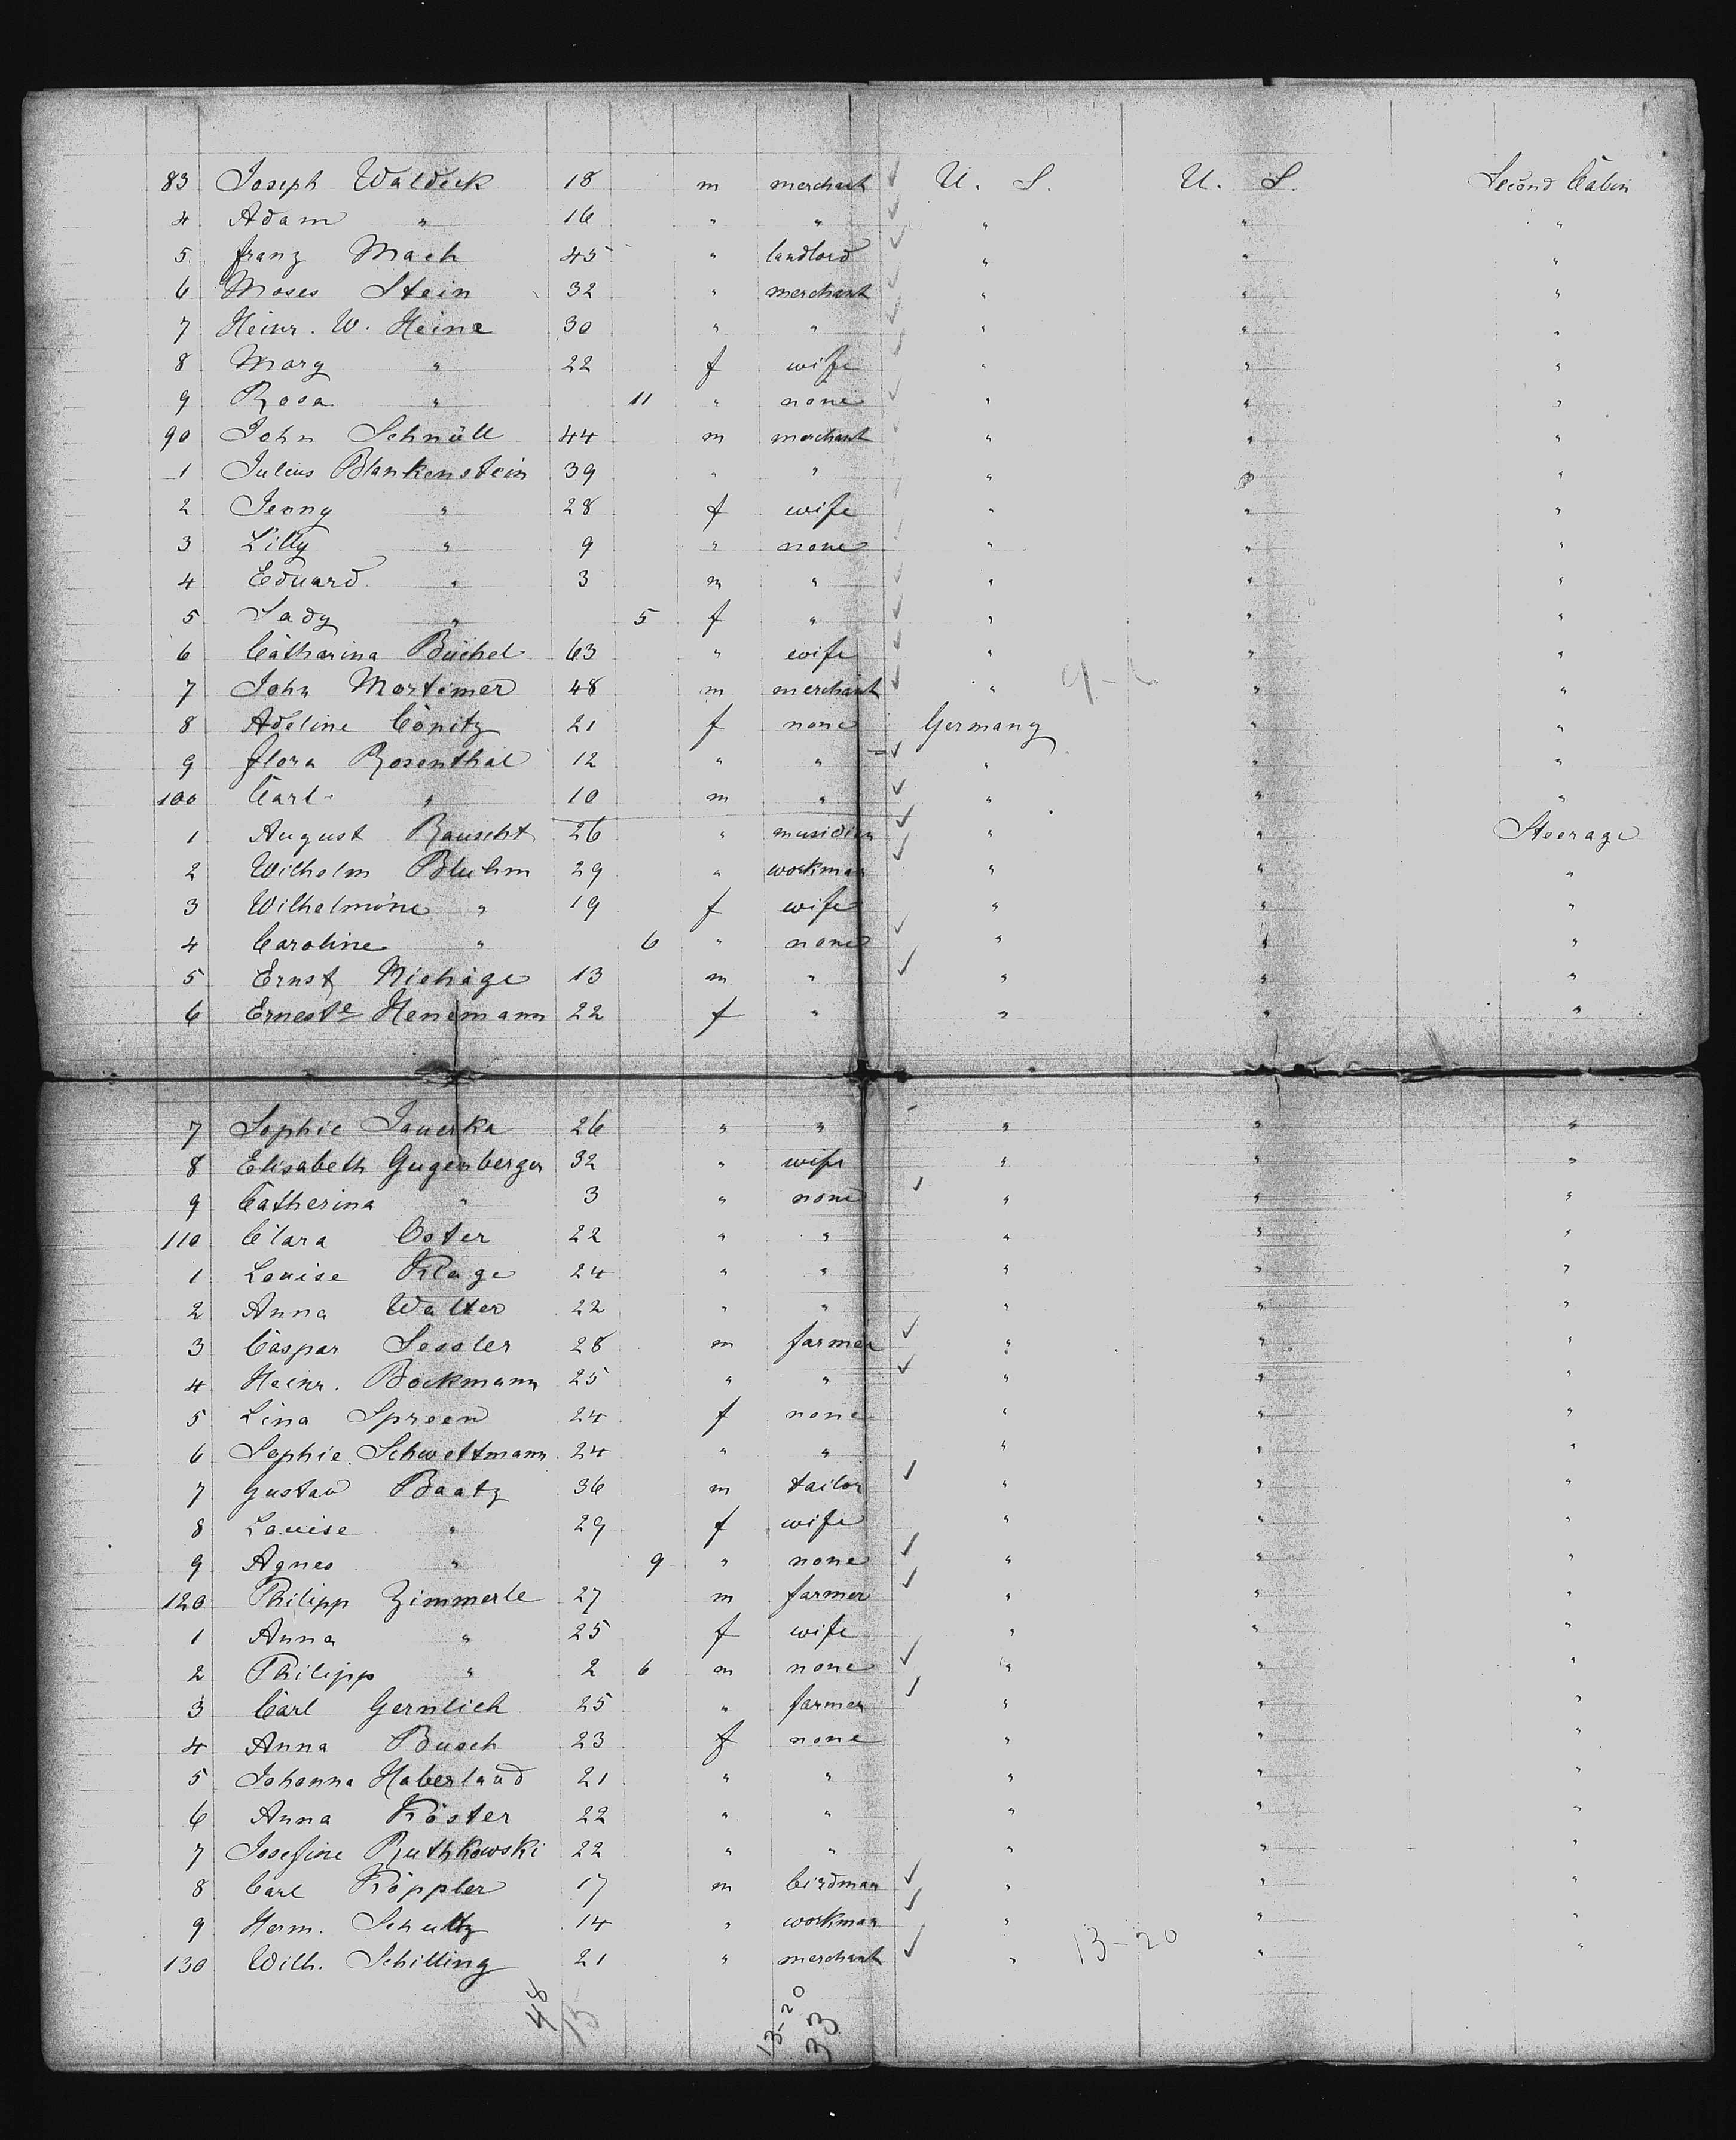 83 Joseph Waldeck 18 m merchant U. S. U. S. Second Cabin
4 Adam " 16 " " " " "
5 Franz Mach 45 " landlord " " "
6 Moses Stein 32 " merchant " " "
7 Heinr. W. Heine 30 " " " " "
8 Mary " 22 f wife " " "
9 Rosa " 11 " none " " "
90 John Schnüll 44 m merchant " " "
1 Julius Blankenstein 39 " " " " "
2 Jenny " 28 f wife " " "
3 Lilly " 9 " none " " "
4 Eduard " 3 m " " " "
5 Sady " 5 f " " " "
6 Catharina Büchel 63 " wife " " "
7 John Mortimer 48 m merchant " " "
8 Adeline Conitz 21 f none Germany " "
9 Flora Rosenthal 12 " " " " "
100 Carl " 10 m " " " "
1 August Rauscht 26 " musician " " Steerage
2 Wilhelm Bluhm 29 " workman " " "
3 Wilhelmine " 19 f wife " " "
4 Caroline " 6 " none " " "
5 Ernst Niehage 13 m " " " "
6 Erneste Henemann 22 f " " " "
7 Sophie Janerka 26 " " " " "
8 Elisabeth Gugenberger 32 " wife " " "
9 Catherina " 3 " none " " "
110 Clara Oster 22 " " " " "
1 Louise Kluge 24 " " " " "
2 Anna Walter 22 " " " " "
3 Caspar Sessler 28 m farmer " " "
4 Heinr. Bockmann 25 " " " " "
5 Lina Spreen 24 f none " " "
6 Sophie Schwettmann 24 " " " " "
7 Gustav Baatz 36 m tailor " " "
8 Louise " 29 f wife " " "
9 Agnes " 9 " none " " "
120 Philipp Zimmerle 27 m farmer " " "
1 Anna " 25 f wife " " "
2 Philipp " 2 6 m none " " "
3 Carl Gernlich 25 " farmer " " "
4 Anna Busch 23 f none " " "
5 Johanna Haberland 21 " " " " "
6 Anna Köster 22 " " " " "
7 Josefine Ruthkowski 22 " " " " "
8 Carl Köppler 17 m birdman " " "
9 Herm. Schultz 14 " workman " " "
130 Wilh. Schilling 21 " merchant " 13-20 " "
48 15 13-20 33